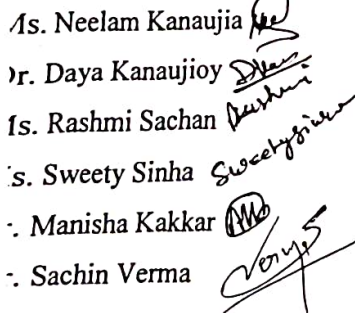 Ms. Neelam Kanaujia
Dr. Daya Kanaujioy
Ms. Rashmi Sachan Rashmi
s. Sweety Sinha Sweetysinha
. Manisha Kakkar
. Sachin Verma Verma